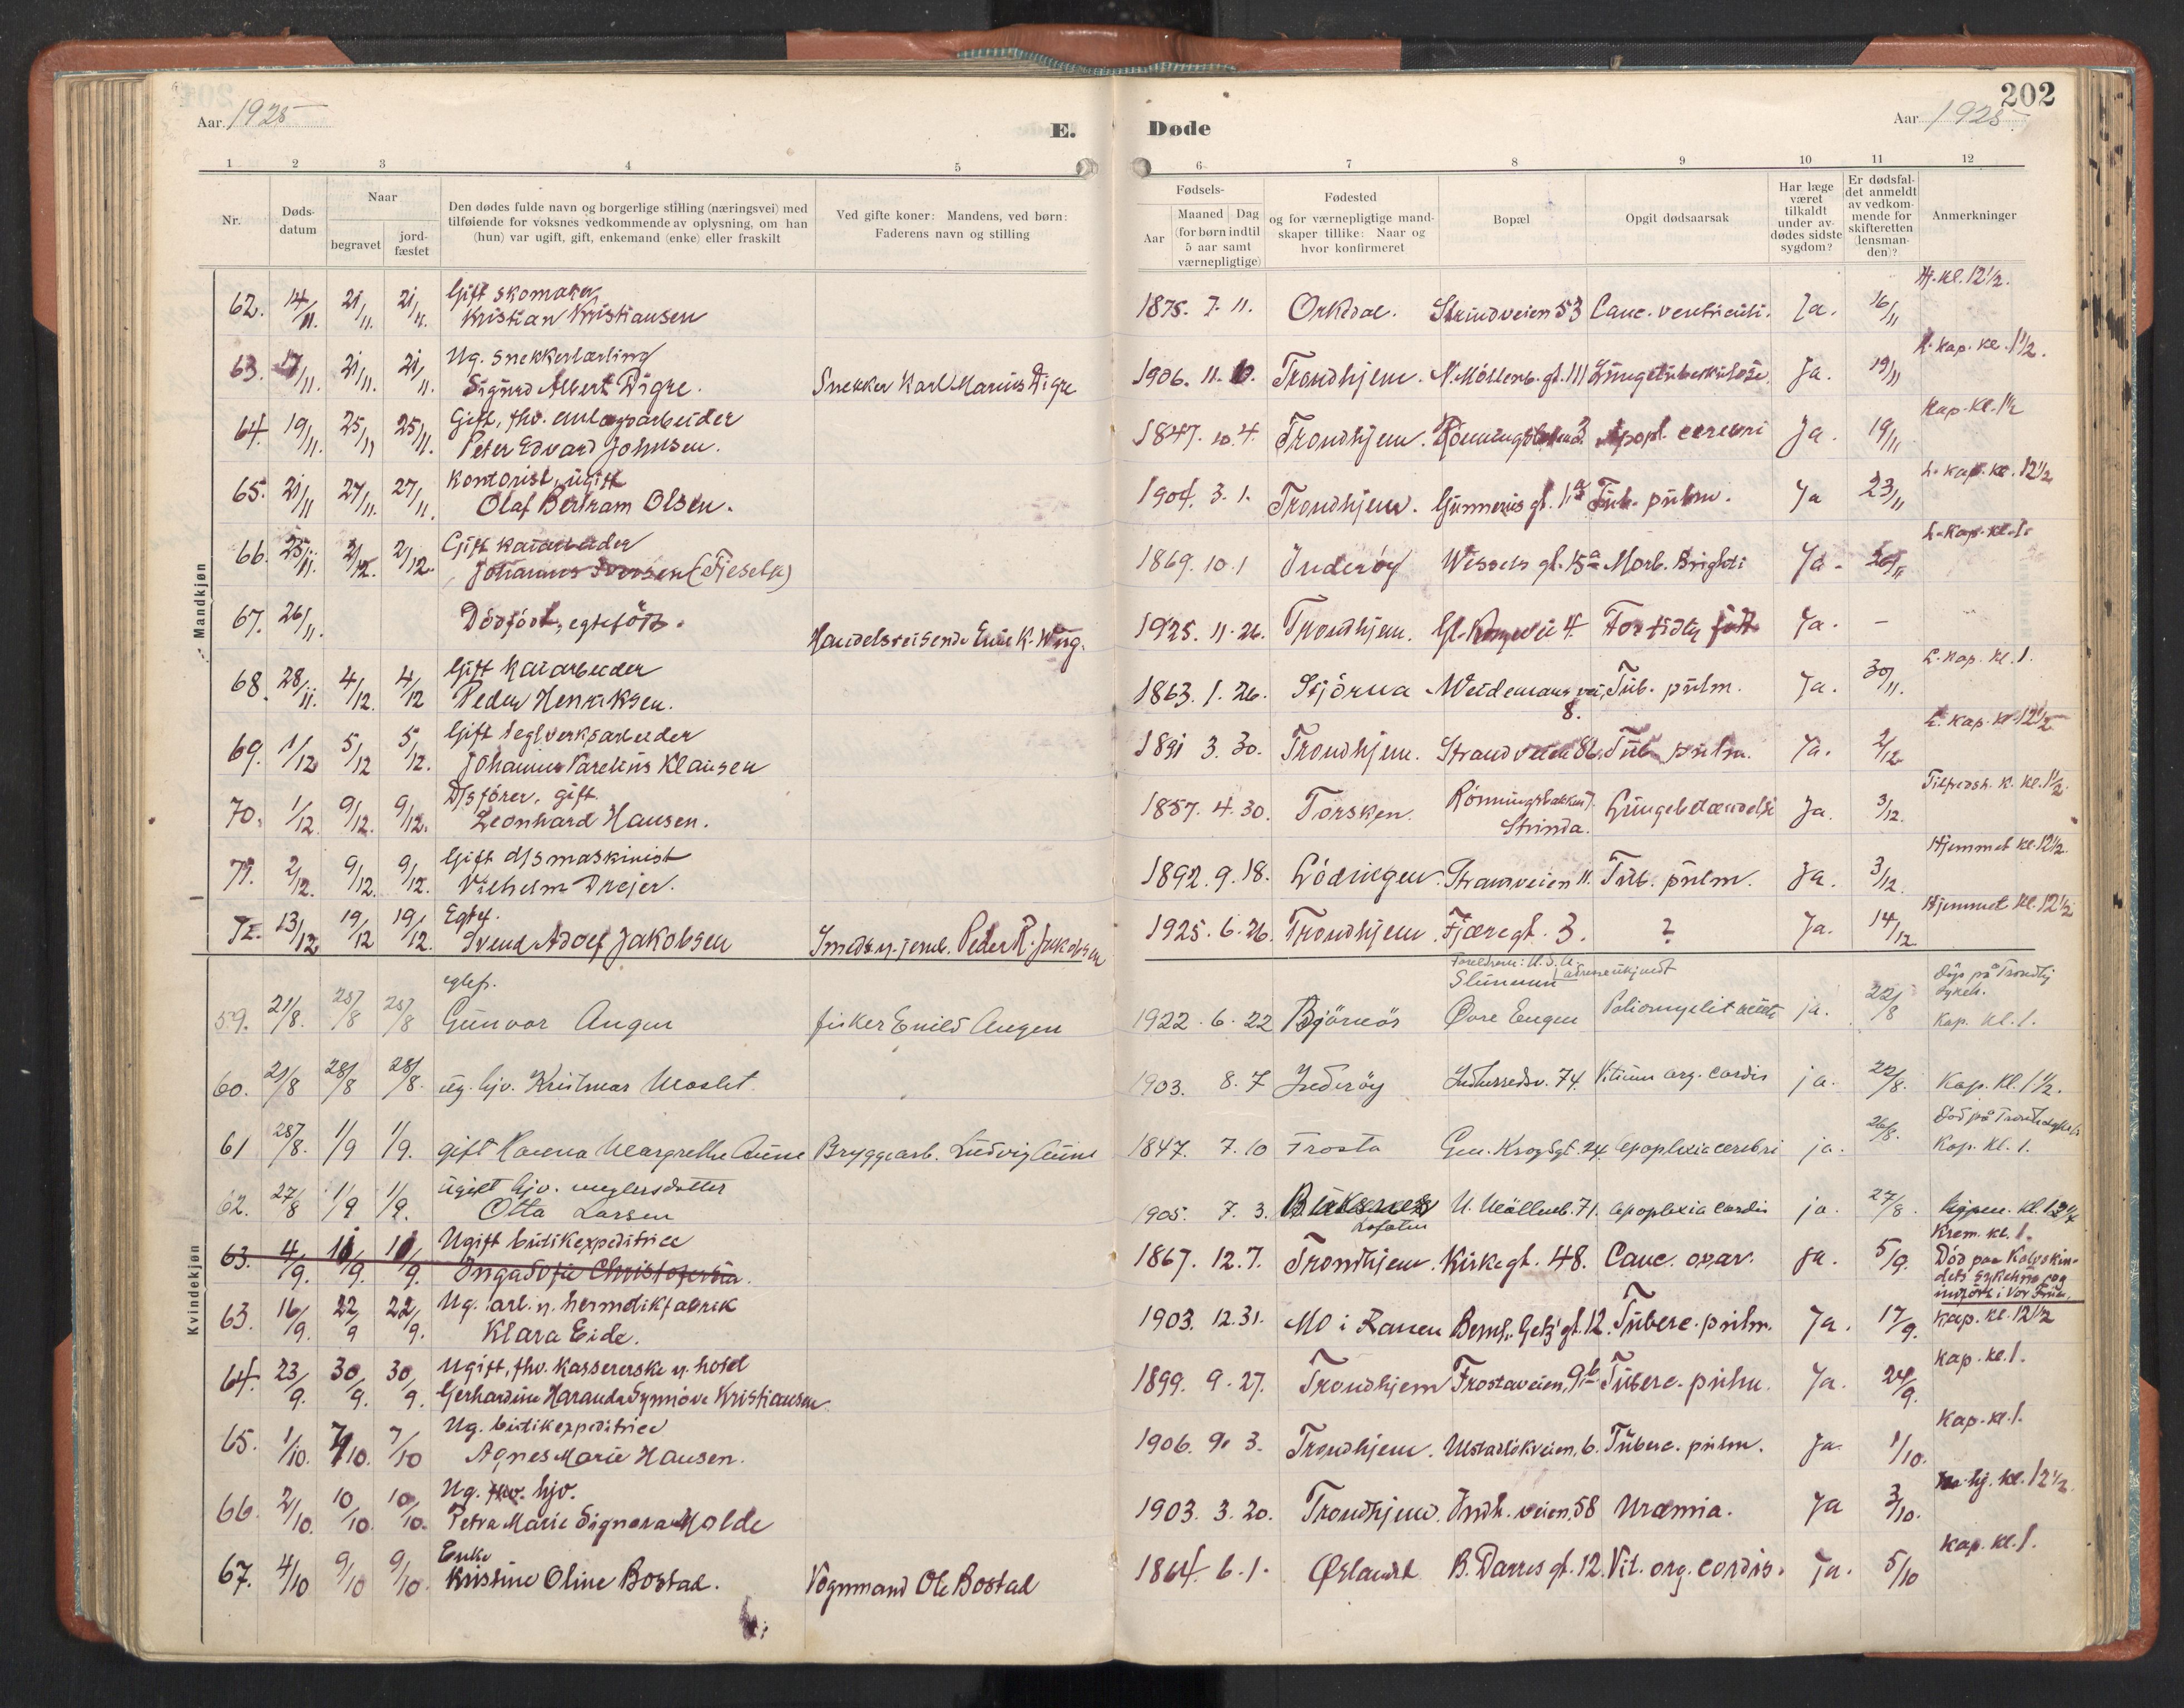 202
Aar. 1925
E. Døde
Aar 1925.
1 2 3 4 5 6 7 8 9 10 11 12
Nr.
Døds-
datum
Naar
begravet
jord-
fæstet
Den dødes fulde navn og borgerlige stilling (næringsvei) med
tilføiende for voksnes vedkommende av oplysning, om han
(hun) var ugift, gift, enkemand (enke) eller fraskilt
Ved gifte koner: Mandens, ved børn:
Faderens navn og stilling
Fødsels-
Aar
Maaned Dag
(for børn indtil
5 aar samt
værnepligtige)
Fødested
og for værnepligtige mand-
skaper tillike: Naar og
hvor konfirmeret
Bopæl
Opgit dødsaarsak
Har læge
været
tilkaldt
under av-
dødes sidste
sygdom?
Er dødsfal-
det anmeldt
av vedkom-
mende for
skifteretten
(lensman-
den)?
Anmerkninger
Mandkjøn
Gift skomaker Hj. kl. 12½.
62. 14/11. 21/11. 21/11. Kristian Kristiansen 1875. 7. 11. Orkdal. Strindveien 53 Canc. ventriculi. Ja. 16/11
Ug. snekkerlærling L. kap. kl. 1½.
63. 17/11. 21/11. 21/11. Sigurd Albert Digre. Snekker Karl Marius Digre 1906. 11. 10. Trondhjem. N. Möllenb. gt. 111 Lungetuberkulose. Ja. 19/11
Gift, fhv. anlægsarbeider Kap. kl. 1½
64. 19/11. 25/11 25/11. Peter Edvard Johnsen. 1847. 10. 4. Trondhjem. Apopl. cerebri Ja. 19/11
Kontorist, ugift L. kap. kl. 12½
65. 21/11 27/11. 27/11. Olaf Bertram Olsen. 1904. 3. 1. Trondhjem. Gunnerus gt. 1a Tub. pulm. Ja 23/11
Gift kaiarbeider L. Kap. kl. 1.
66. 25/11. 2/12. 2/12. Johannes Iversen (Fieselk) 1869. 10. 1 Inderöy Wessels gt. 15a Morb. Brighti Ja. 26/11
67. 26/11. Dödfödt, egtefödt. Handelsreisende K. Wing. 1925. 11. 26. Trondhjem. Gl. Kongevei 4. For tidlig født Ja. -
Gift kaiarbeider L. kap. kl. 1.
68. 28/11. 4/12. 4/12 Peder Henriksen. 1863. 1. 26. Stjörna Weidemans vei, 8. Tub. pulm. Ja. 30/11.
Gift teglverksarbeider L. kap. kl. 12½
69. 1/12 5/12 5/12. Johannes Parelius Klausen 1891 3. 30. Trondhjem. Strandveien 86. Tub. pulm. Ja. 2/12.
D/S förer, gift. Tilfredsh. k. kl. 1½.
70. 1/12. 9/12. 9/12. Leonhard Hansen. 1857. 4. 30. Torsken. Rönningsbakken 7. Strinda. Lungebetændelse Ja. 3/12.
Gift d/s maskinist Hjemmet kl. 12½.
71. 2/12. 9/12. 9/12. Vilhelm Drejer. 1892. 9. 18. Lödingen. Strandveien 11. Tub. pulm. Ja. 3/12.
Egtef. Hjemmet kl. 12½
72. 13/12 19/12 19/12. Svend Adolf Jakobsen Smed v. jernb. Peder R. Jakobsen 1925. 6. 26. Trondhjem. Fjæregt. 3. ? Ja. 14/12.
Kvindekjøn
egtef. Foreldrene: U.S.A. adresse ukjendt Död på Trondhj sykeh.
59. 21/8. 25/8 25/8 Gunvor Angen fisker Emild Angen 1922. 6. 22 Björnör Övre Engen Poliomyelit acuta ja. 22/8 Kap. kl. 1.
60. 21/8 28/8 28/8. ug. hjv. Moslet. 1903. 8. 7 Inderöy Indherredsv. 74. Vitium org. cordis ja. 22/8. Kap. kl. 1½.
61 25/8. 1/9 1/9. gift Margrethe Aune Bryggearb. Ludvig Aune 1847. 7. 10 Frosta Gen. Krogsgt. 24. Apoplexia cerebri ja. 26/8. Kap. kl. 1.
ugift hjv.
62. 27/8 1/9 1/9. Otta Larsen 1905. 7. 3. Lofoten N. Möllenb. 71. Apoplexia cordis ja. 27/8.
Ugift butikexpeditrice Krem. kl. 1.
63. 4/9. 10/9. 10/9. Inga Sofie Christofersen. 1867. 12. 7. Trondhjem. Kirkegt. 48. Canc. ovar. Ja. 5/9. Död paa Kalvskin-
dets sykehus og
indfört i Vor Frue.
Ug. arb. v. hermetikfabrik
63. 16/9. 22/9 22/9. Klara Eide. 1903. 12. 31. Mo i Ranen Bernh. Getz' gt. 12. Tuberc. pulm. Ja. 17/9. Kap. kl. 12½
Ugift, fhv. kassererske v. hotel Kap. kl. 1.
64. 23/9. 30/9. 30/9. Gerhardine Haranda Synnöve Kristiansen 1899. 9. 27. Trondhjem Frostaveien, 9b Tuberc. pulm. Ja. 24/9.
Ug. butikexpeditrice Kap. kl. 1.
65. 1/10. 7/10. 7/10 Agnes Marie Hansen. 1906. 9. 3. Trondhjem. Ulstadlökveien, 6. Tuberc. pulm. Ja. 1/10.
Ug. fhv. hjv. hj. kl. 12½.
66. 2/10. 10/10. 10/10. Petra Marie Signora Molde 1903. 3. 20. Trondhjem. Indh. veien, 58 Uræmia. Ja 3/10.
Enke Kap. kl. 1.
67. 4/10 9/10 9/10. Kristine Oline Bostad. Vognmand Ole Bostad 1864. 6. 1. Ørlandet B. Darres gt. 12. Vit. org. cordis. Ja. 5/10